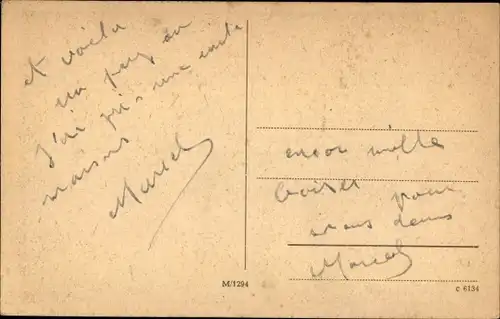 et voila
un pays ou
J'ai pris une carte
maisons
Marcel
encor mille
baiser pour
vous deux
Marcel
M/1294
c 6134